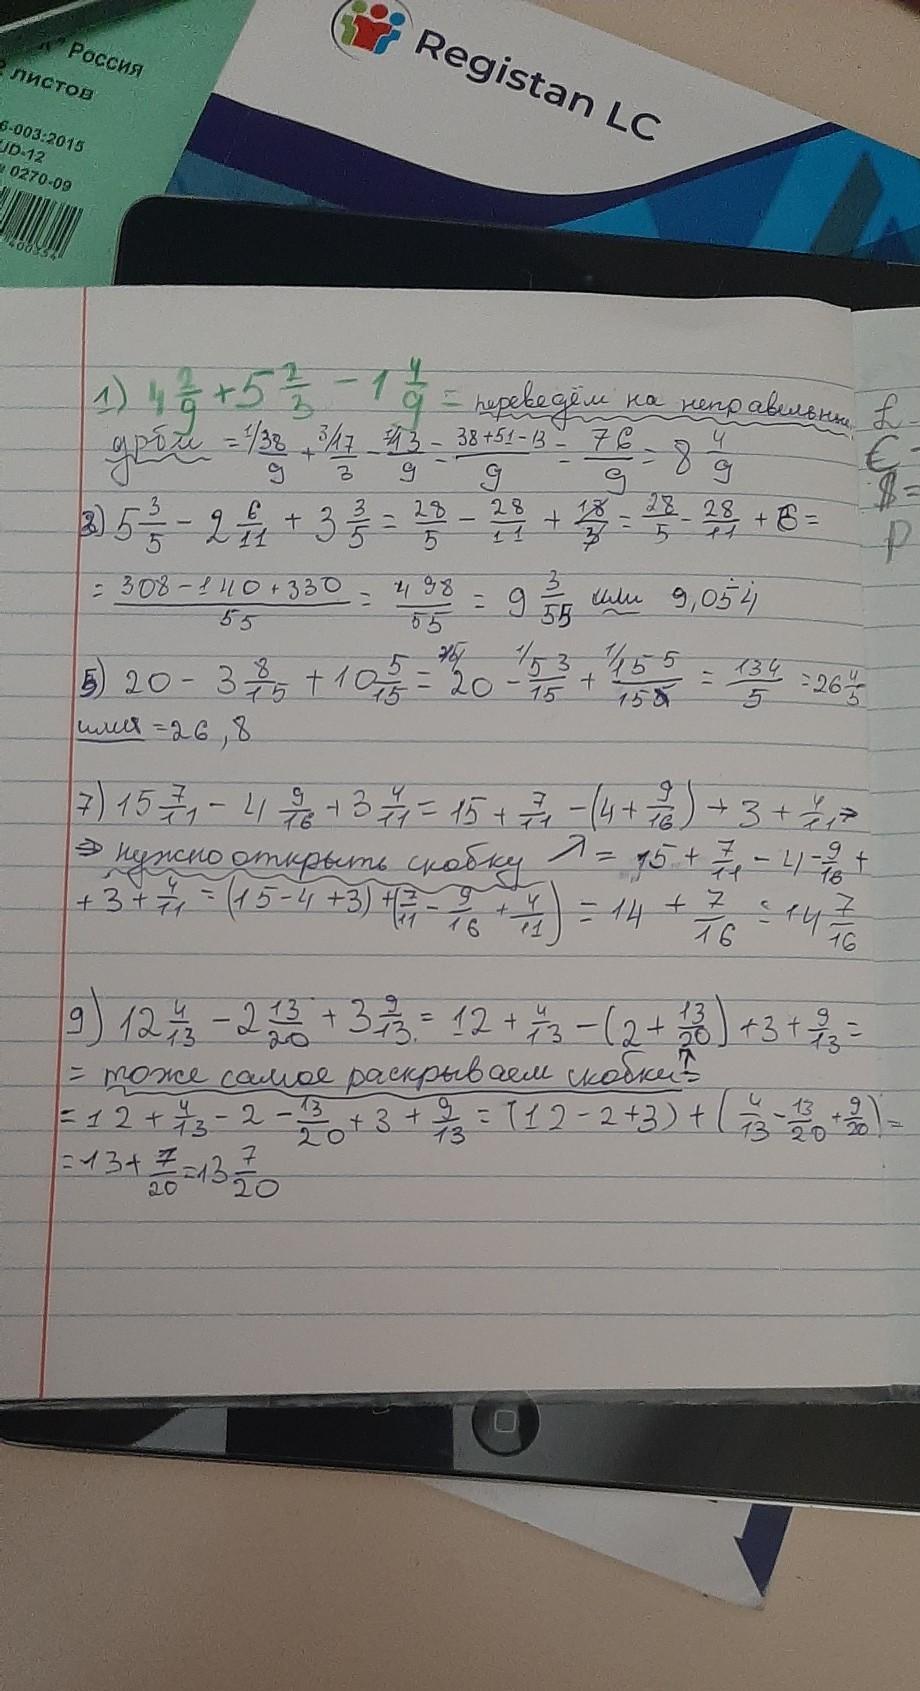 "К" Россия
2 листов
6-003:2015
UD-12
0270-09
400334
Registan LC
1) 4 2/9 + 5 2/3 - 1 4/9 = переведём на неправельные
дроби = 1/38/9 + 3/17/3 - 13/9 = 38+51-13/9 = 76/9 = 8 4/9
3) 5 3/5 - 2 6/11 + 3 3/5 = 28/5 - 28/11 + 18/3 = 28/5 - 28/11 + 6 =
= 308-140+330/55 = 498/55 = 9 3/55 или 9,054
5) 20 - 3 8/15 + 10 5/15 = 20 - 1/53/15 + 1/155/15 = 134/5 = 26 4/5
или = 26,8
7) 15 7/11 - 4 9/16 + 3 4/11 = 15 + 7/11 - (4 + 9/16) + 3 + 4/11 ⇒
⇒ нужно открыть скобку ↗ = 15 + 7/11 - 4 - 9/16 +
+ 3 + 4/11 = (15-4+3) + (7/11 - 9/16 + 4/11) = 14 + 7/16 = 14 7/16
9) 12 4/13 - 2 13/20 + 3 9/13 = 12 + 4/13 - (2 + 13/20) + 3 + 9/13 =
= тоже самое раскрываем скобки ↑ =
= 12 + 4/13 - 2 - 13/20 + 3 + 9/13 = (12-2+3) + (4/13 - 13/20 + 9/20) =
= 13 + 7/20 = 13 7/20
£ -
€ -
$ =
р